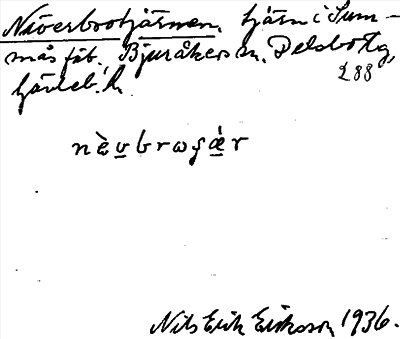 Näverbrotjärnen, tjärn i Sum-
mås fäb., Bjuråkers sn, Delsbo tg,
Gävleb. l.
L 88
nɛ̀vbrωʃǽr
Nils Erik Eriksson 1936.